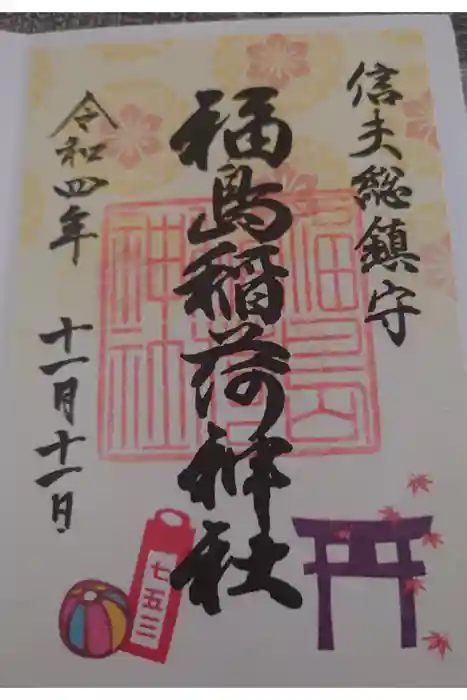 信夫総鎮守
福島稲荷神社
令和四年
十一月十一日
七五三